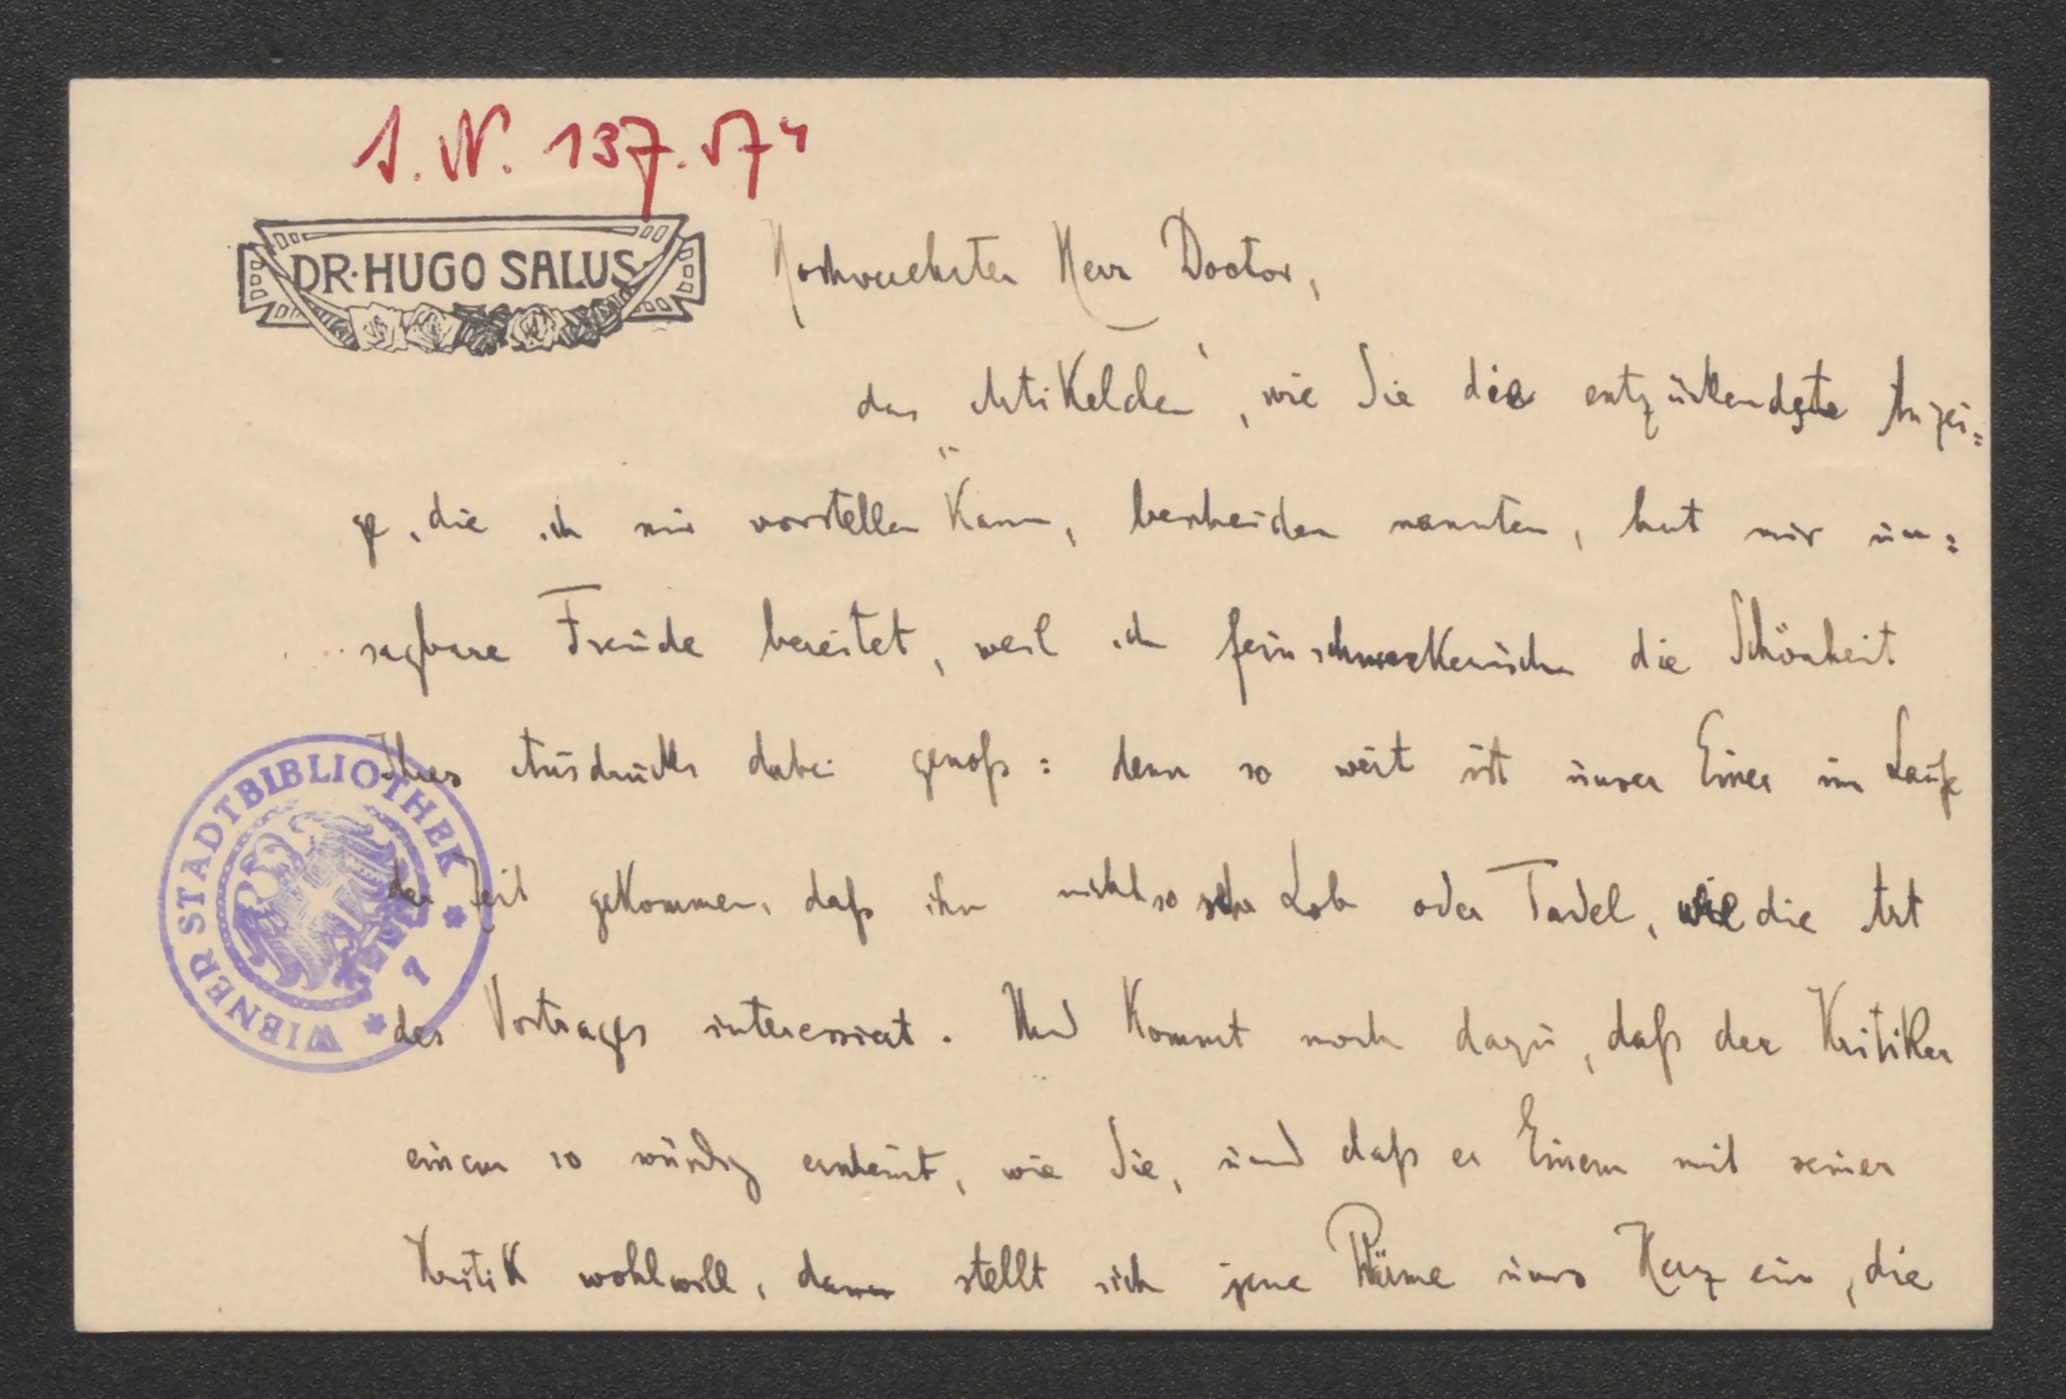 I. N. 137.574
DR. HUGO SALUS
Hochverehrter Herr Doctor,
das „Artikelchen“, wie Sie die entzückendste Anzei=
ge, die ich mir vorstellen kann, bescheiden nannten, hat mir un=
sagbare Freude bereitet, weil ich feinschmeckerisch die Schönheit
Ihres Ausdrucks dabei genoß: denn so weit ist unser Einer im Laufe
der Zeit gekommen, daß ihn nicht so sehr Lob oder Tadel, wie die Art
des Vortrages interessirt. Und kommt noch dazu, daß der Kritiker
einem so würdig erscheint, wie Sie, und daß er Einem mit seiner
Kritik wohlwill, dann stellt sich jene Wärme ums Herz ein, die
WIENER STADTBIBLIOTHEK * 1 *